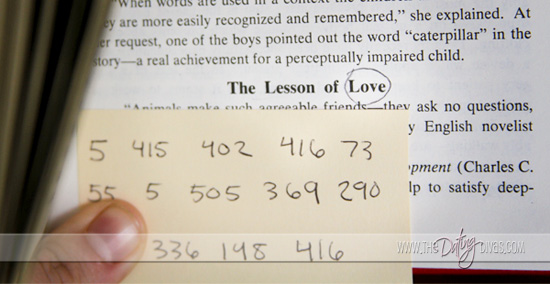 "When words are used in a context the children
ey are more easily recognized and remembered," she explained. At
er request, one of the boys pointed out the word "caterpillar" in the
story—a real achievement for a perceptually impaired child.
The Lesson of Love
"Animals make such agreeable friends—they ask no questions,
y English novelist
5 415 402 416 73
pment (Charles C.
55 5 505 369 290
lp to satisfy deep-
336 198 416
WWW.THE Dating DIVAS.COM